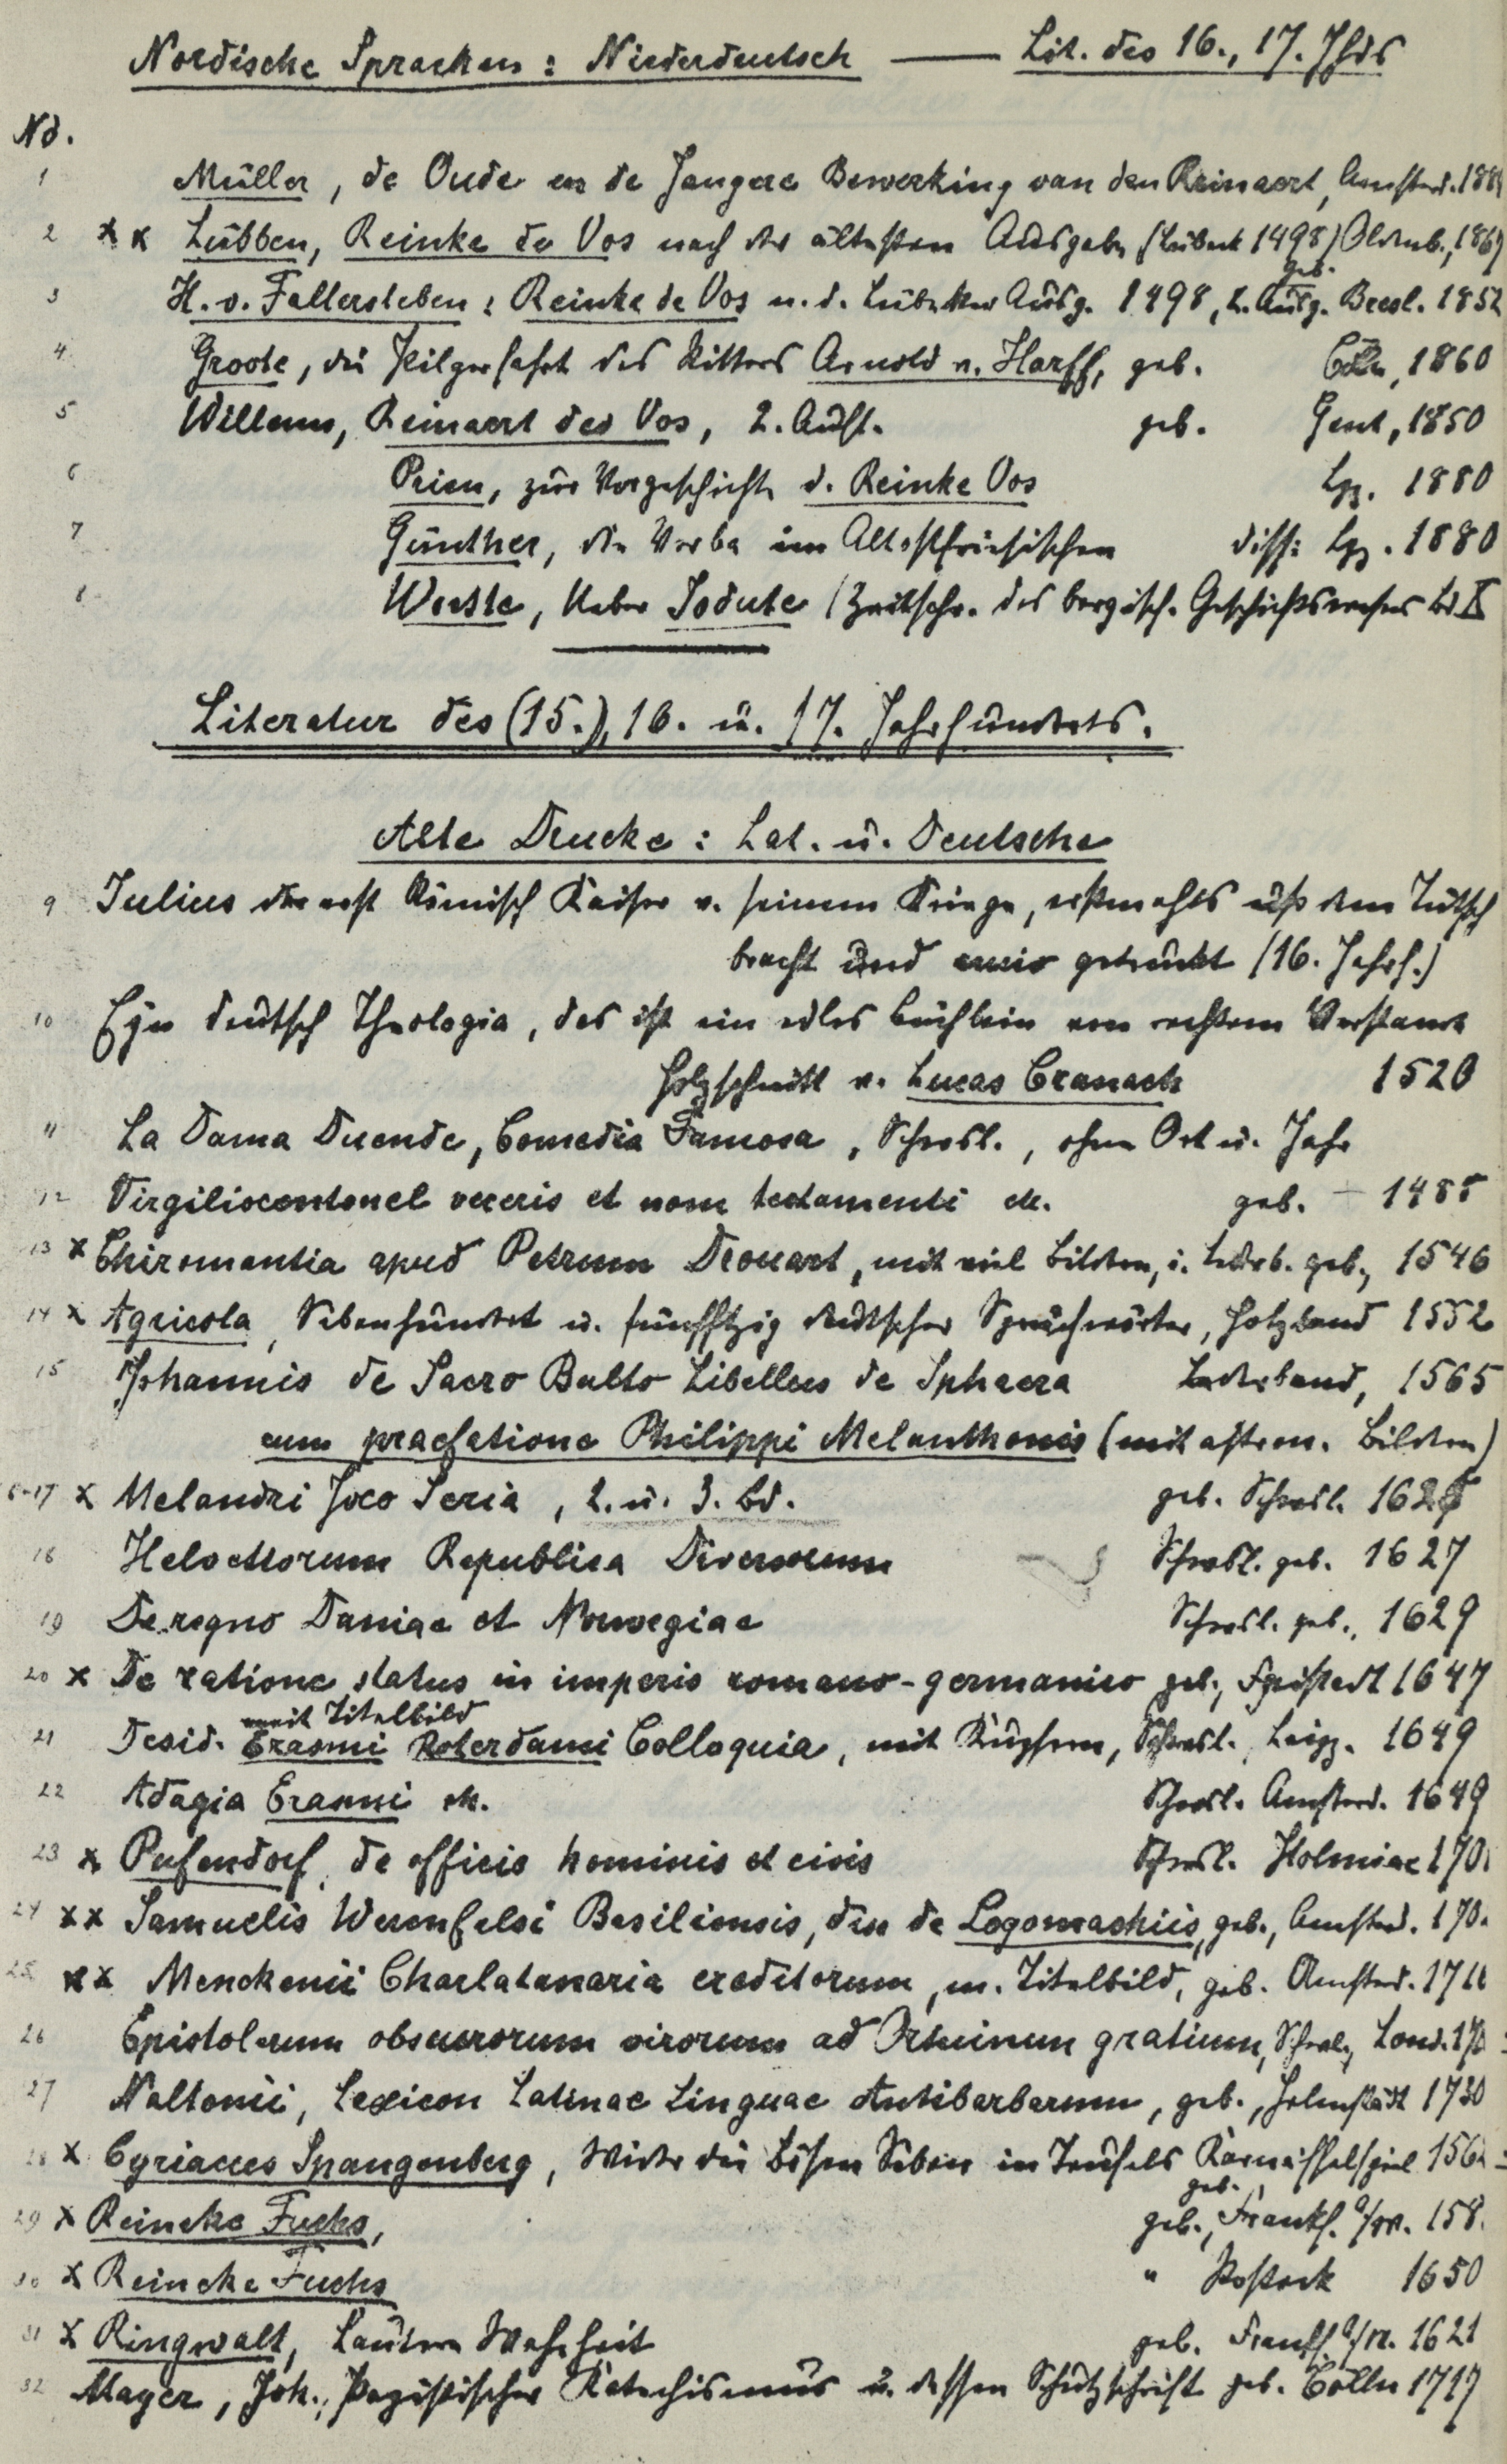 Nordische Sprachen: Niederdeutsch — Lit. des 16., 17. Jhds
Nd.
1 Müller, de Oude en de Jangere Bewerking van den Reinaert, Amsterd. 188
2 x x Lübben, Reinke de Vos nach der ältesten Ausgabe (Lübeck 1498) Oldenb., 1867
geb.
3 H. v. Fallersleben: Reinke de Vos n. d. Lübecker Ausg. 1498, 2. Ausg. Bresl. 1852
4 Groote, die Pilgerfahrt des Ritters Arnold v. Harff, geb. Cöln, 1860
5 Willems, Reinaert des Vos, 2. Aufl. geb. Gent, 1850
6 Prien, zur Vorgeschichte d. Reinke Vos Lpz. 1880
7 Günther, die Verba im Altostfriesischen diss: Lpz. 1880
8 Woeste, Ueber Jodute (Zeitschr. des bergisch. Geschichtsvereins Bd IX
Literatur des (15.), 16. u. 17. Jahrhunderts.
Alte Drucke: Lat. u. Deutsche
9 Julius der erst Römisch Kaiser v. seinem Kriege, erstmahls uß dem Tütsch
bracht und getruckt (16. Jahrh.)
10 Eyn deutsch Theologia, das ist ein edles Büchlein von rechtem Verstand
Holzschnitt v. Lucas Cranach 1520
11 La Dama Duende, Comedia Famosa, Schwsl., ohne Ort u. Jahr
12 Virgiliocentonel veteris et nove testamenti etc. geb. 1485
13 x Chiromantia apud Petrum Drouart, mit viel Bildern, i. Lederb. geb., 1546
14 x Agricola, Sibenhundert u. fünfftzig deutscher Sprichwörter, Holzband 1552
15 Johannis de Sacro Busto Libellus de Sphaera Lederband, 1565
cum praefatione Philippi Melanthonis (mit astron. Bildern)
16-17 x Melandri Joco Seria, 2. u. 3. Bd. geb. Schwsl. 162
18 Helvetiorum Republica Diversorum Schwsl. geb. 1627
19 De regno Daniae et Norwegiae Schwsl. geb., 1629
20 x De ratione status in imperio romano-germanico geb., Freistadt 1647
mit Titelbild
21 Desid. Erasmi Roterdami Colloquia, mit Kupfern, Schwsl., Leipz. 1649
22 Adagia Erasmi etc. Schwsl. Amsterd. 1649
23 x Pufendorf, de officio hominis et civis Schwsl. Holmiae 170
24 x x Samuelis Werenfelsi Basiliensis, diss de Logomachiis, geb., Amsterd. 170
25 x x Menckenii Charlatanaria eruditorum, m. Titelbild, geb. Amsterd. 1716
26 Epistolarum obscurorum virorum ad Ortuinum gratium, Schwsl., Lond. 170
27 Noltenii, Lexicon Latinae Linguae Antibarbarum, geb., Helmstädt 1730
28 x Cyriacus Spangenberg, Wider die bösen Siben in Teufels Karnöffelspiel 156
geb.
29 x Reineke Fuchs, geb., Frankf. a/M. 158
30 x Reineke Fuchs " Rostock 1650
31 x Ringwalt, Lautere Wahrheit geb. Frankf. a/M. 1621
32 Mayer, Joh., Papistischer Katechismus u. dessen Schutzschrift geb. Cölln 1717